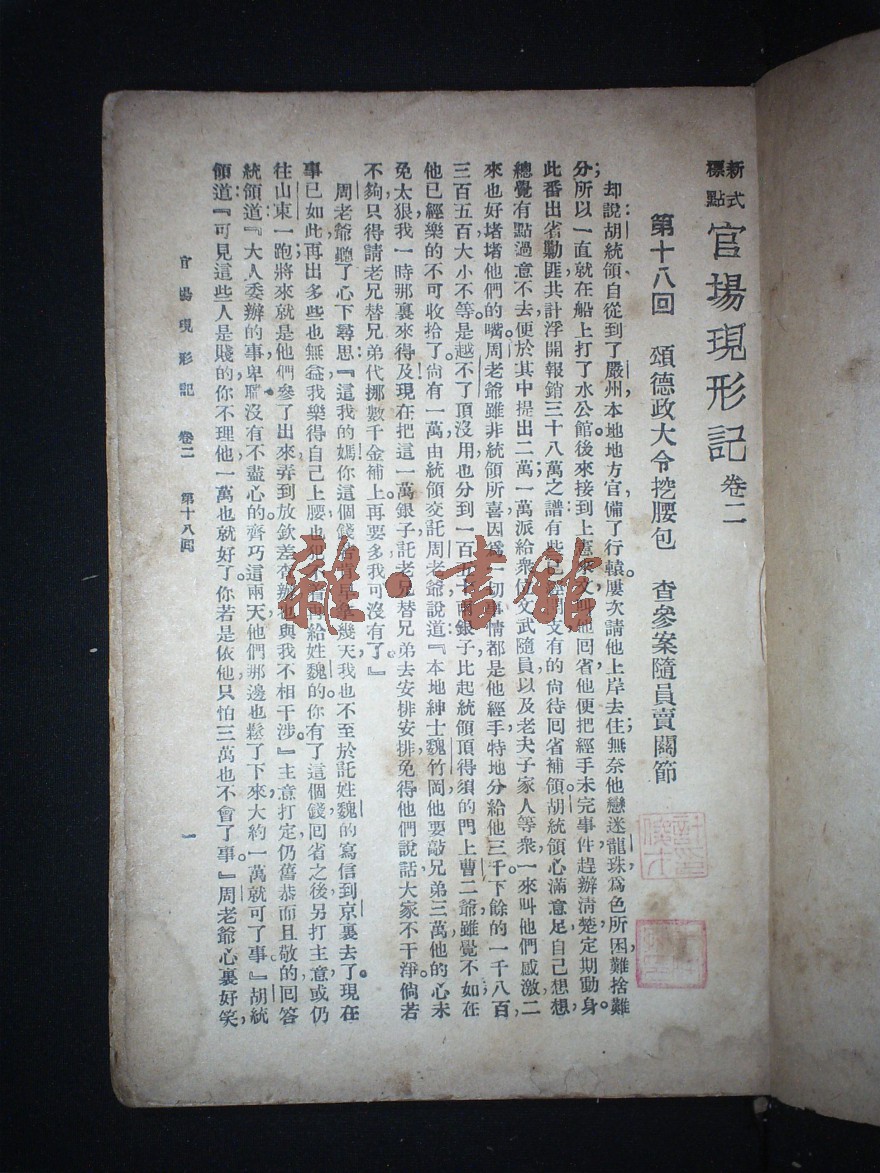 新式標點 官場現形記 卷二
第十八回 頌德政大令挖腰包 查參案隨員賣關節
却說：胡統領自從到了嚴州，本地地方官備了行轅，屢次請他上岸去住，無奈他戀迷龍珠，爲色所困，難捨難
分；所以一直就在船上打了水公館。後來接到上憲來文，叫他回省，他便把經手未完事件，趕辦清楚，定期動身。
此番出省勦匪，共計浮開報銷三十八萬之譜，有些已經開支，有的尚待回省補領。胡統領心滿意足，自己想想，
總覺有點過意不去，便於其中提出二萬：一萬派給衆位文武隨員，以及老夫子家人等衆，一來叫他們感激，二
來也好堵堵他們的嘴。周老爺雖非統領所喜，因爲一切事情，都是他經手，特地分給他三千；下餘的一千八百，
三百五百，大小不等。是越不了頂沒用也分到一百五十兩銀子。比起統領頂得須的門上曹二爺，雖覺不如，在
他已經樂的不可收拾了。尚有一萬由統領交託周老爺說道：『本地紳士魏竹岡，他要敲兄弟三萬，他的心未
免太狠，我一時那裏來得及！現在把這一萬銀子，託老兄替兄弟去安排安排，免得他們說話，大家不干淨。倘若
不夠，只得請老兄替兄弟代挪數千金補上，再要多我可沒有了。』
周老爺聽了，心下尋思：『這我的媽！你這個錢若肯早拿幾天，我也不至於託姓魏的寫信到京裏去了。現在
事已如此，再出多些也無益，我樂得自己上腰，也犯不着再給姓魏的。你有了這個錢，回省之後，另打主意，或仍
往山東一跑，將來就是他們參了出來，弄到放欽差查辦，也與我不相干涉。』主意打定，仍舊恭而且敬的回答
統領道：『大人委辦的事，卑職沒有不盡心的。齊巧這兩天他們那邊也鬆了下來，大約一萬就可了事。』胡統
領道：『可見這些人是賤的，你不理他，一萬也就好了。你若是依他，只怕三萬也不會了事。』周老爺心裏好笑，
官場現形記 卷二 第十八回 一
雜·書館